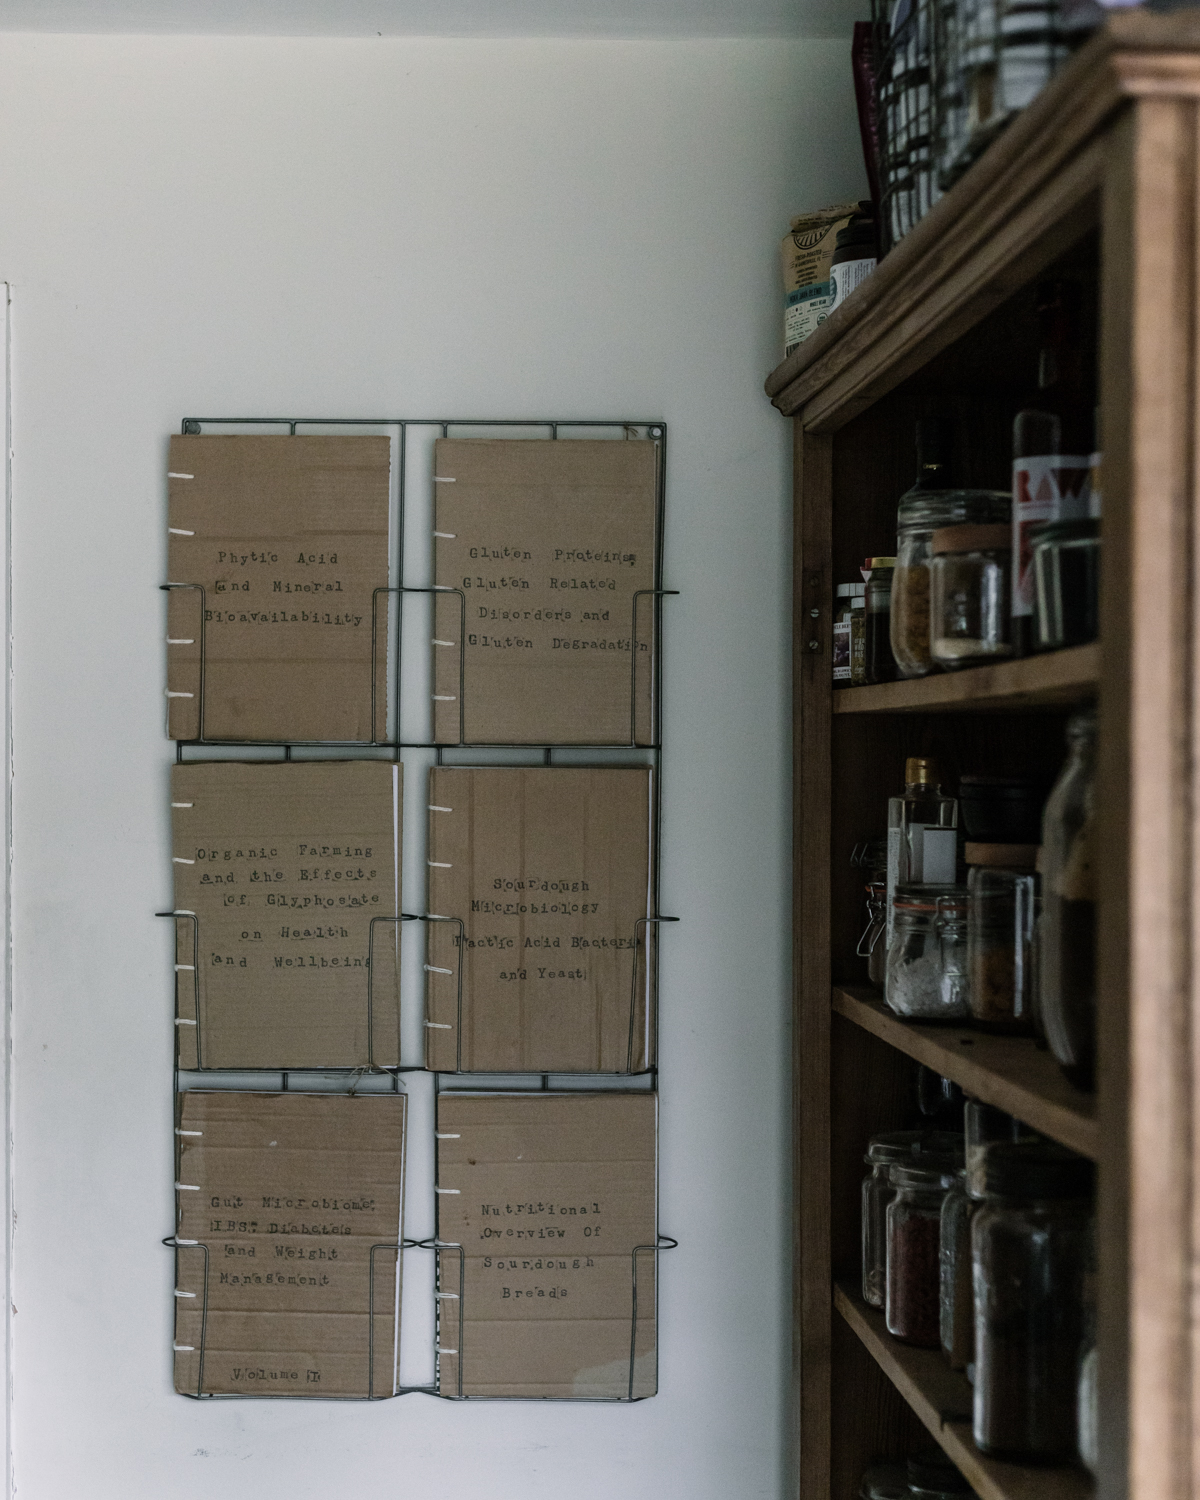 Phytic Acid
and Mineral
Bioavailability
Gluten Proteins,
Gluten Related
Disorders and
Gluten Degradation
Organic Farming
and the Effects
of Glyphosate
on Health
and Wellbeing
Sourdough
Microbiology
Lactic Acid Bacteria
and Yeast
Gut Microbiome,
IBS, Diabetes
and Weight
Management
Volume I
Nutritional
Overview Of
Sourdough
Breads
RAW